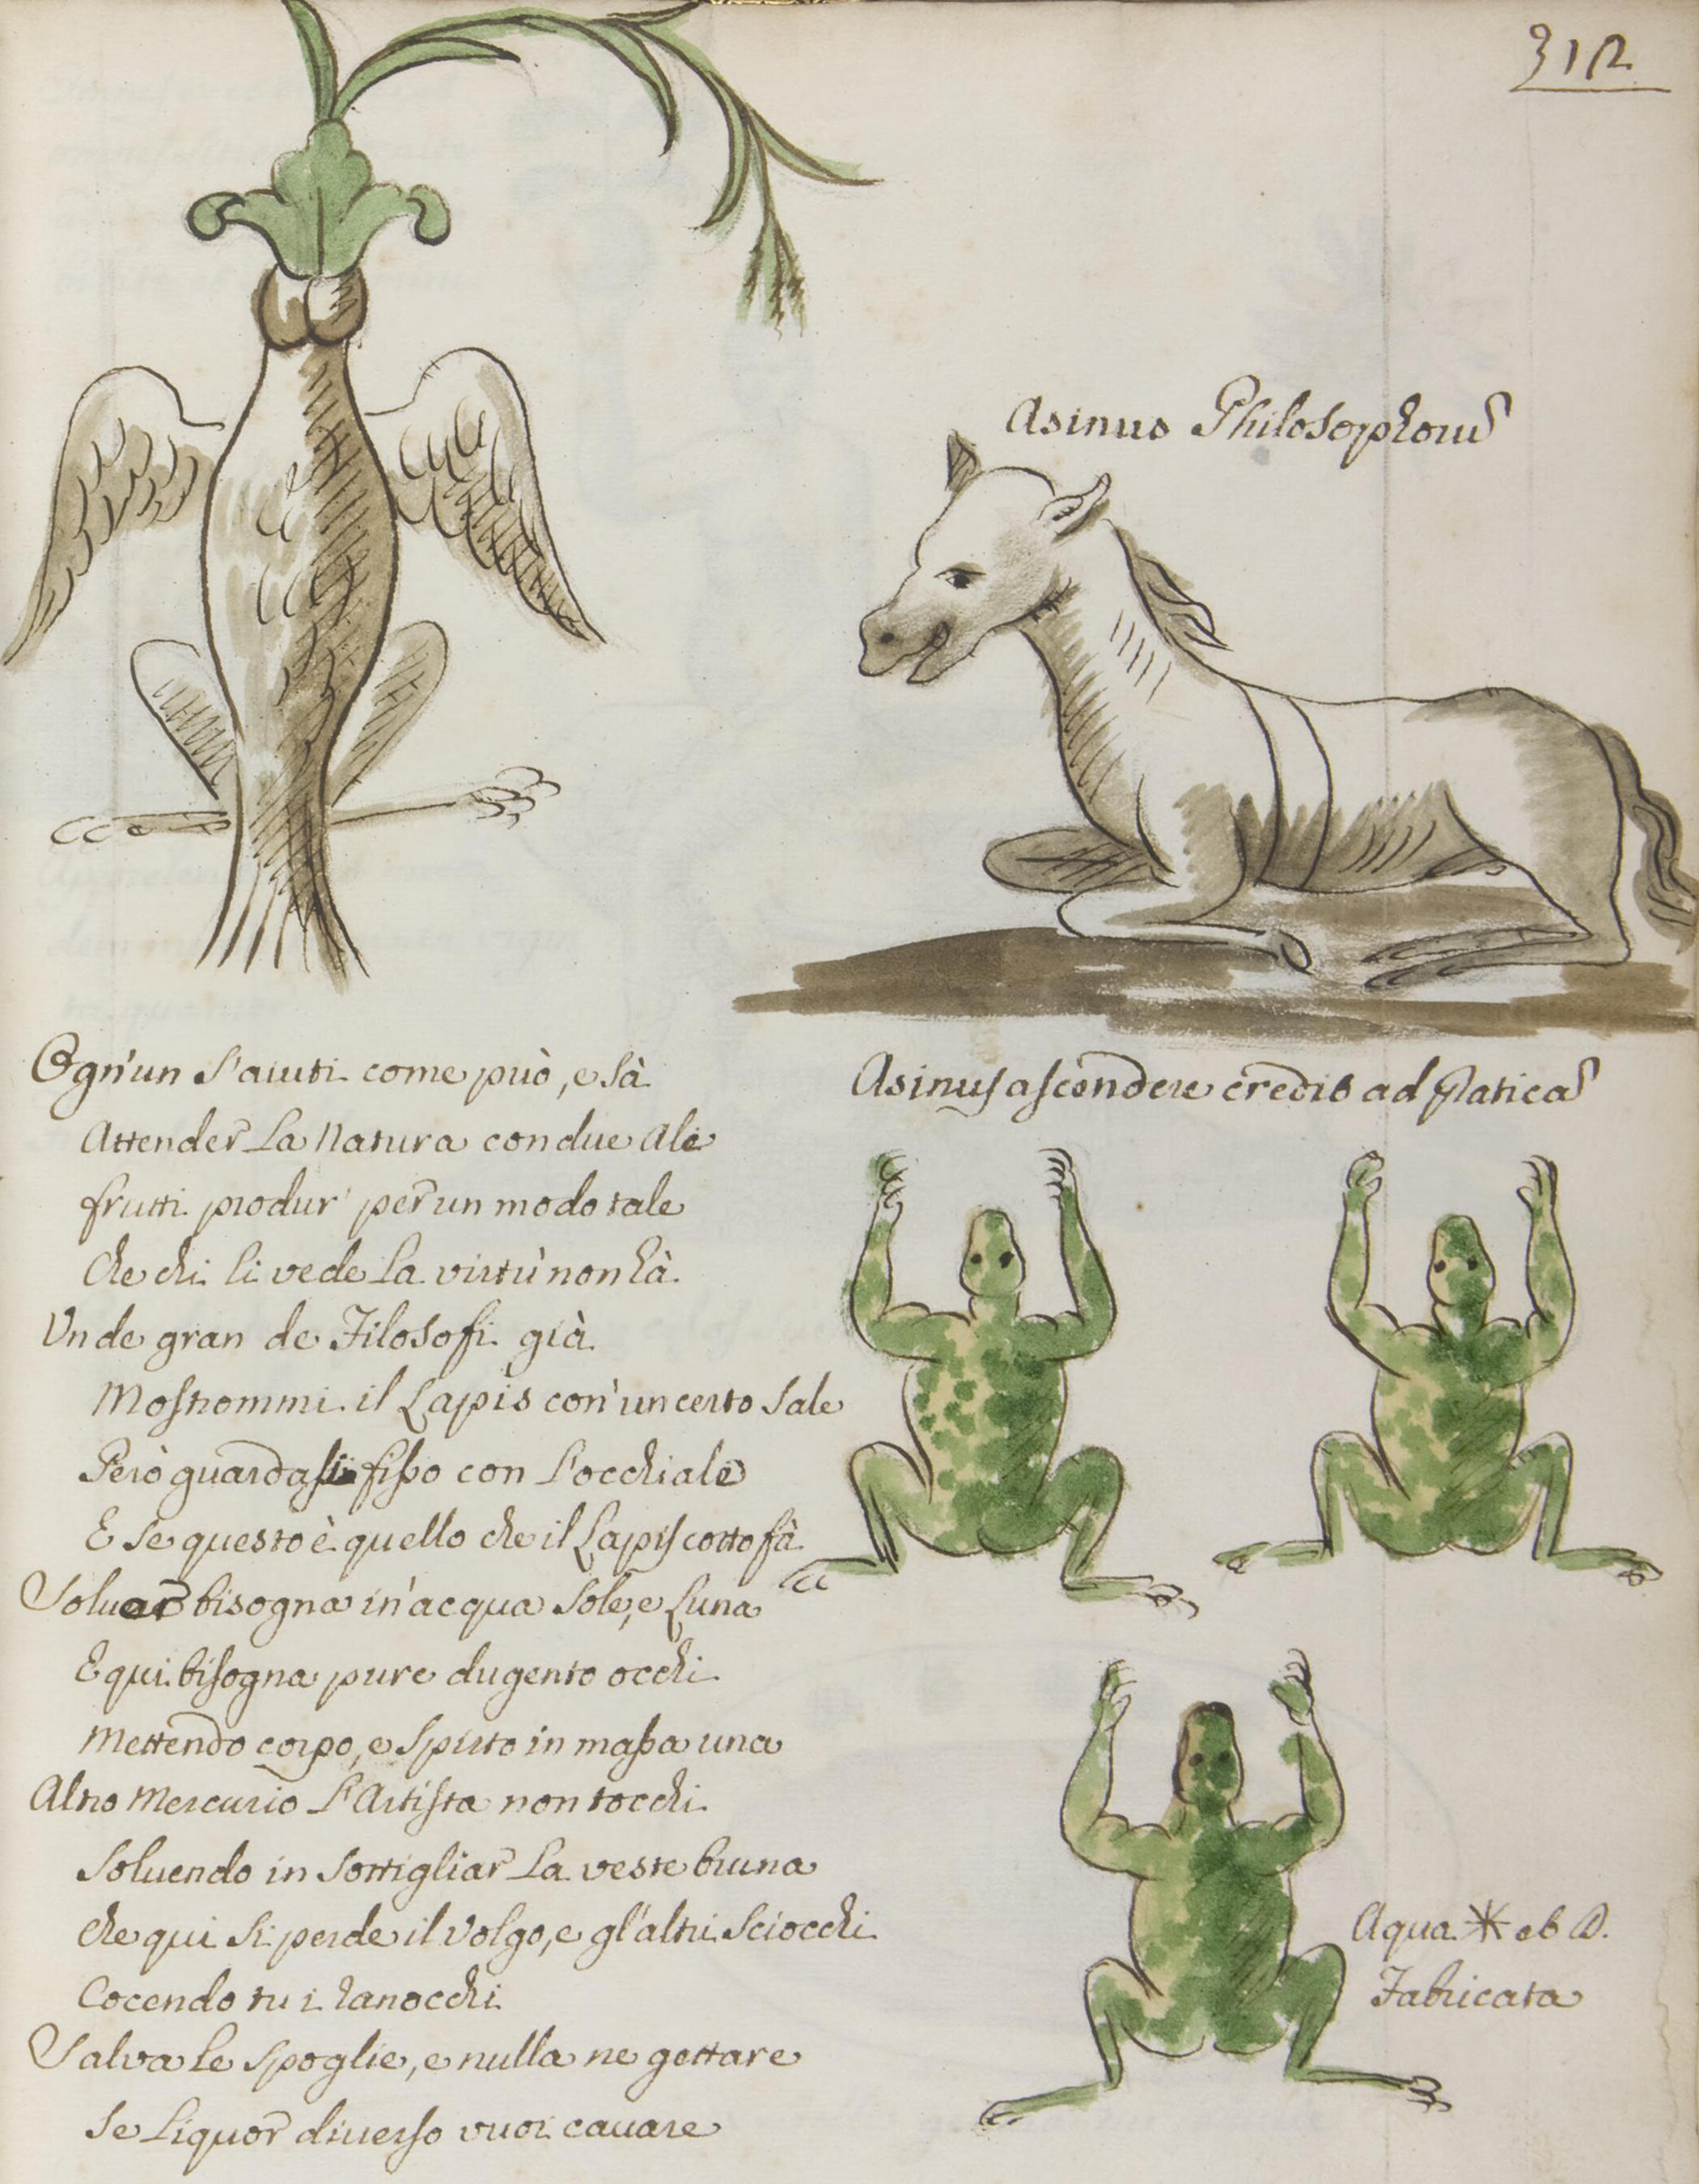 312
Asinus Philosophorū
Ogn'un s'aiuti come può, e sà
Attender la Natura con due Ale
frutti produr per un modo tale
Che chi li vede la virtù non hà.
Un de gran de Filosofi già
Mostrommi il Lapis con' un certo sale
Però guardasi fisso con l'occhiale
E se questo è quello che il Lapis cotto fà
Soluar bisogna in'acqua Sole, e Luna
E qui bisogna pure dugento occhi
Mettendo corpo, e spirto in massa una
Altro Mercurio l'Artista non tocchi
Soluendo in sottigliar la veste bruna
che qui si perde il Volgo, e gl'altri sciocchi
Cocendo tu i ranocchi
Salva le spoglie, e nulla ne gettare
Se liquor diuerso vuoi cauare
Asinus ascendere credit ad
Aqua * eb
Fabricata